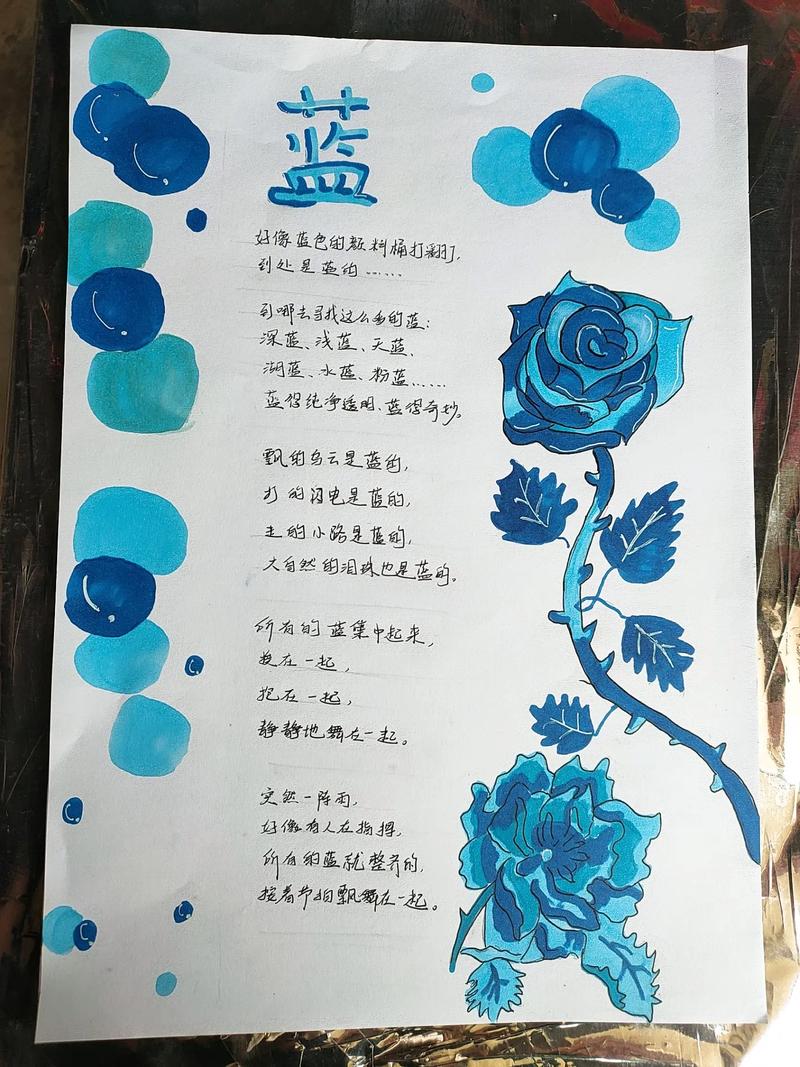 蓝
好像蓝色的颜料桶打翻了,
到处是蓝的……
到哪去寻找这么多的蓝:
深蓝、浅蓝、天蓝、
湖蓝、水蓝、粉蓝……
蓝得纯净透明、蓝得奇妙。
飘的乌云是蓝的,
打的闪电是蓝的,
走的小路是蓝的,
大自然的泪珠也是蓝的。
所有的蓝集中起来,
在一起,
抱在一起,
静静地舞在一起。
突然一阵雨,
好像有人在指挥,
所有的蓝就整齐的,
按着节拍飘舞在一起。